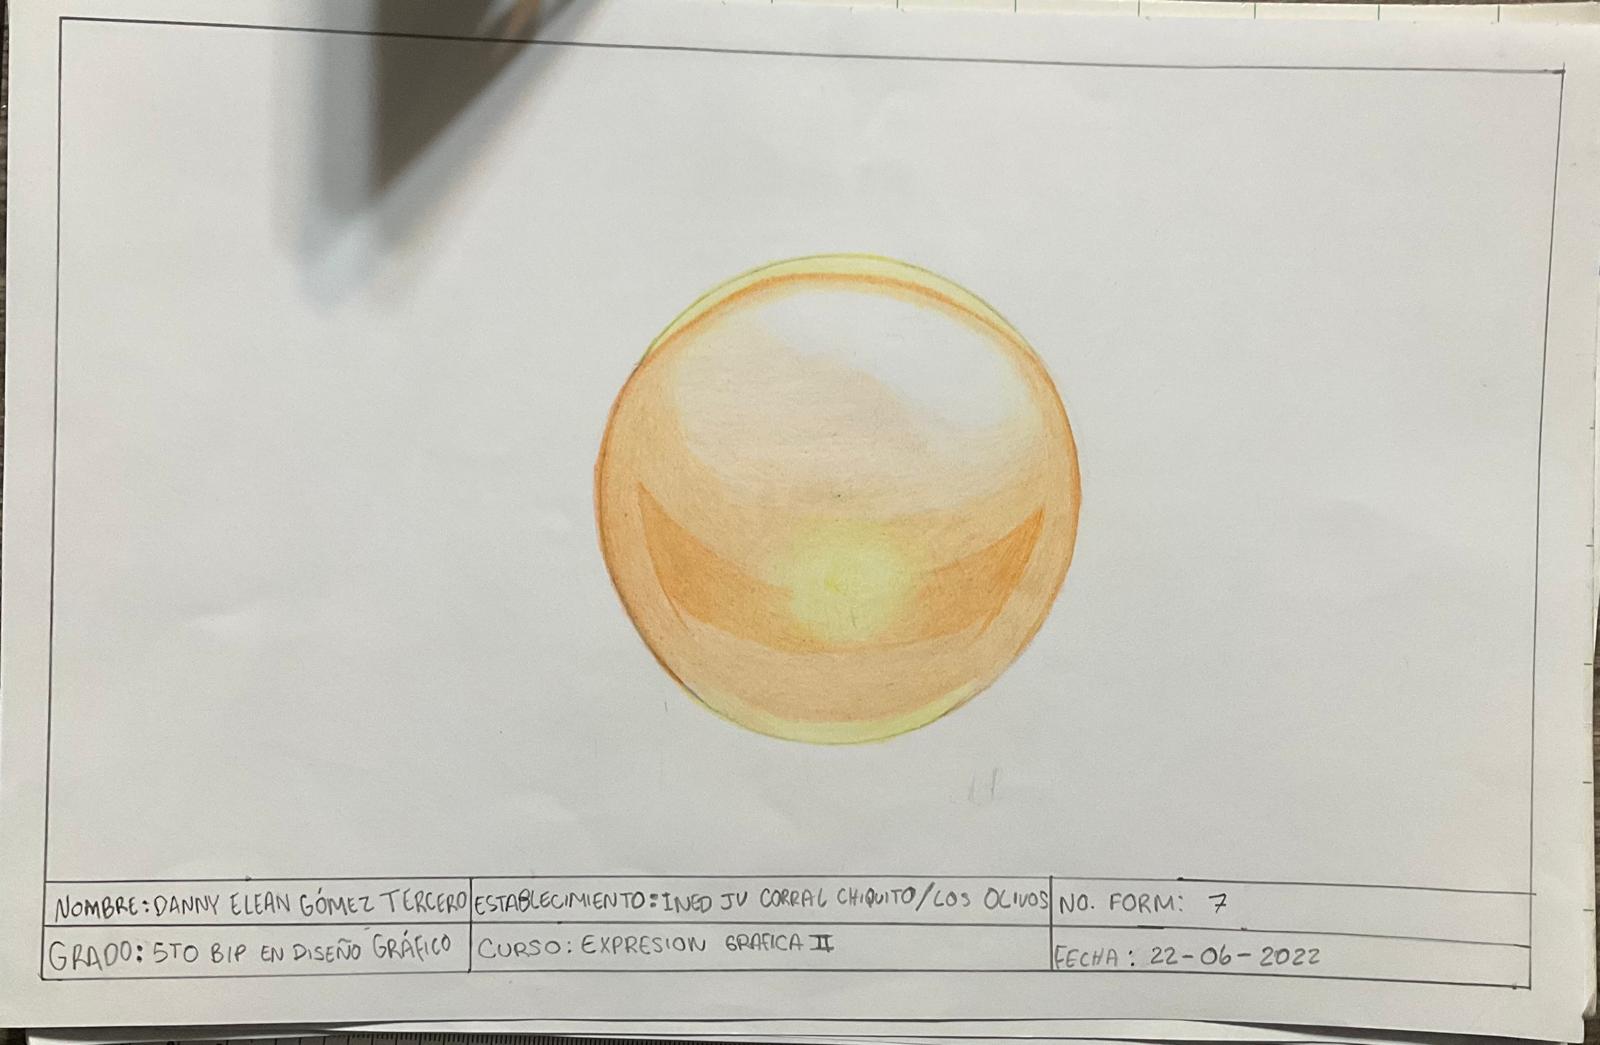 NOMBRE: DANNY ELEAN GÓMEZ TERCERO
ESTABLECIMIENTO: INED JV CORRAL CHIQUITO/LOS OLIVOS
NO. FORM: 7
GRADO: 5TO BIP EN DISEÑO GRÁFICO
CURSO: EXPRESION GRAFICA II
FECHA: 22-06-2022